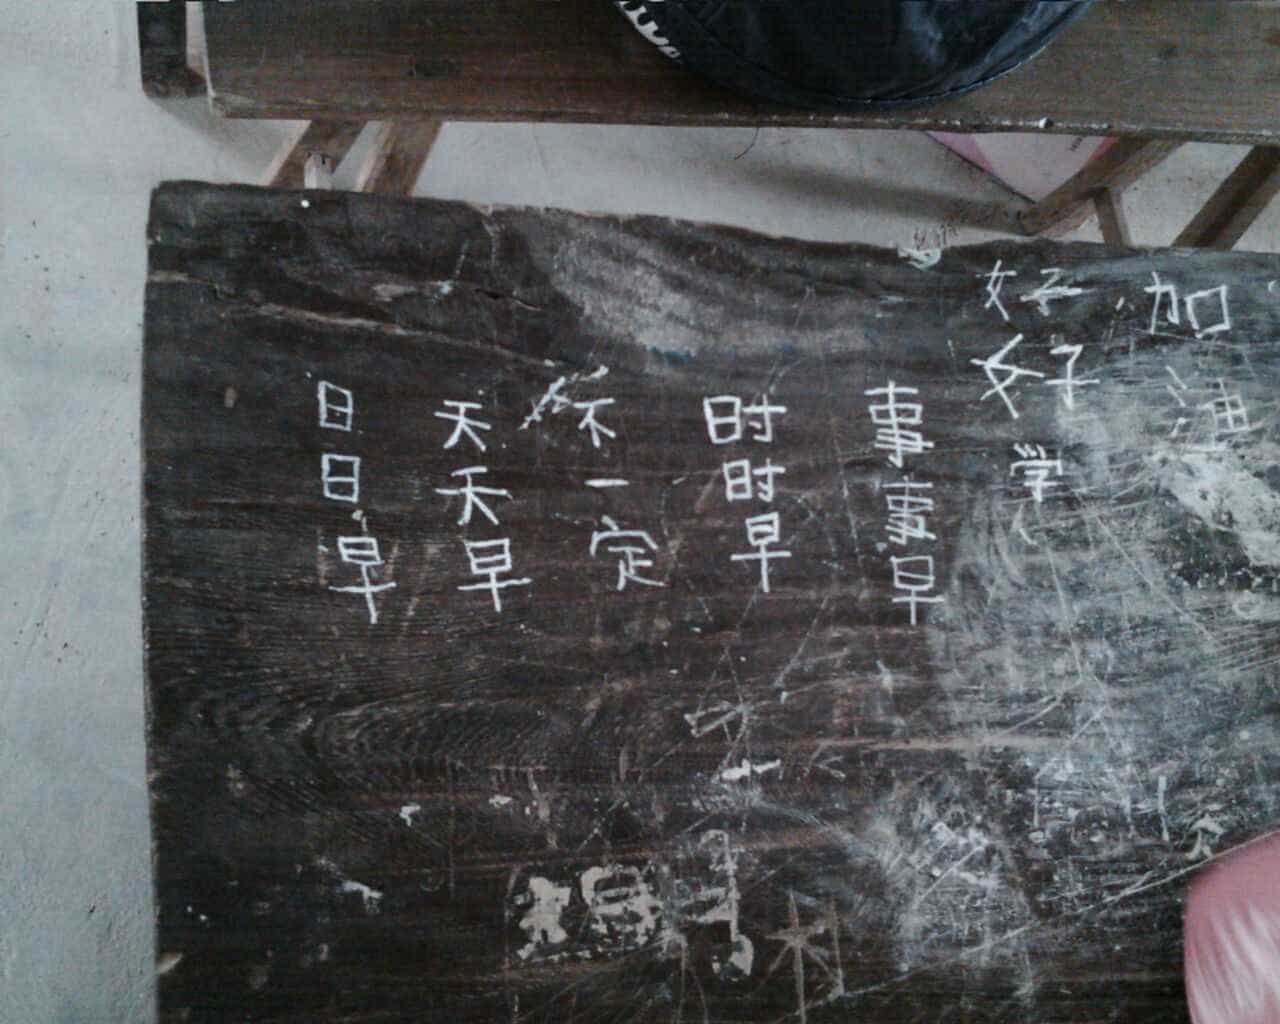 日日早
天天早
不一定
时时早
事事早
好好学
加油